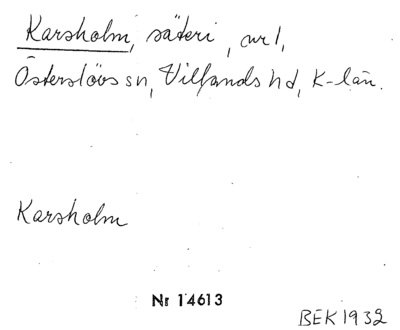 Karsholm, säteri, nr 1,
Österslövs sn, Villands hd, K-län.
Karsholm
Nr 14613
BEK 1932